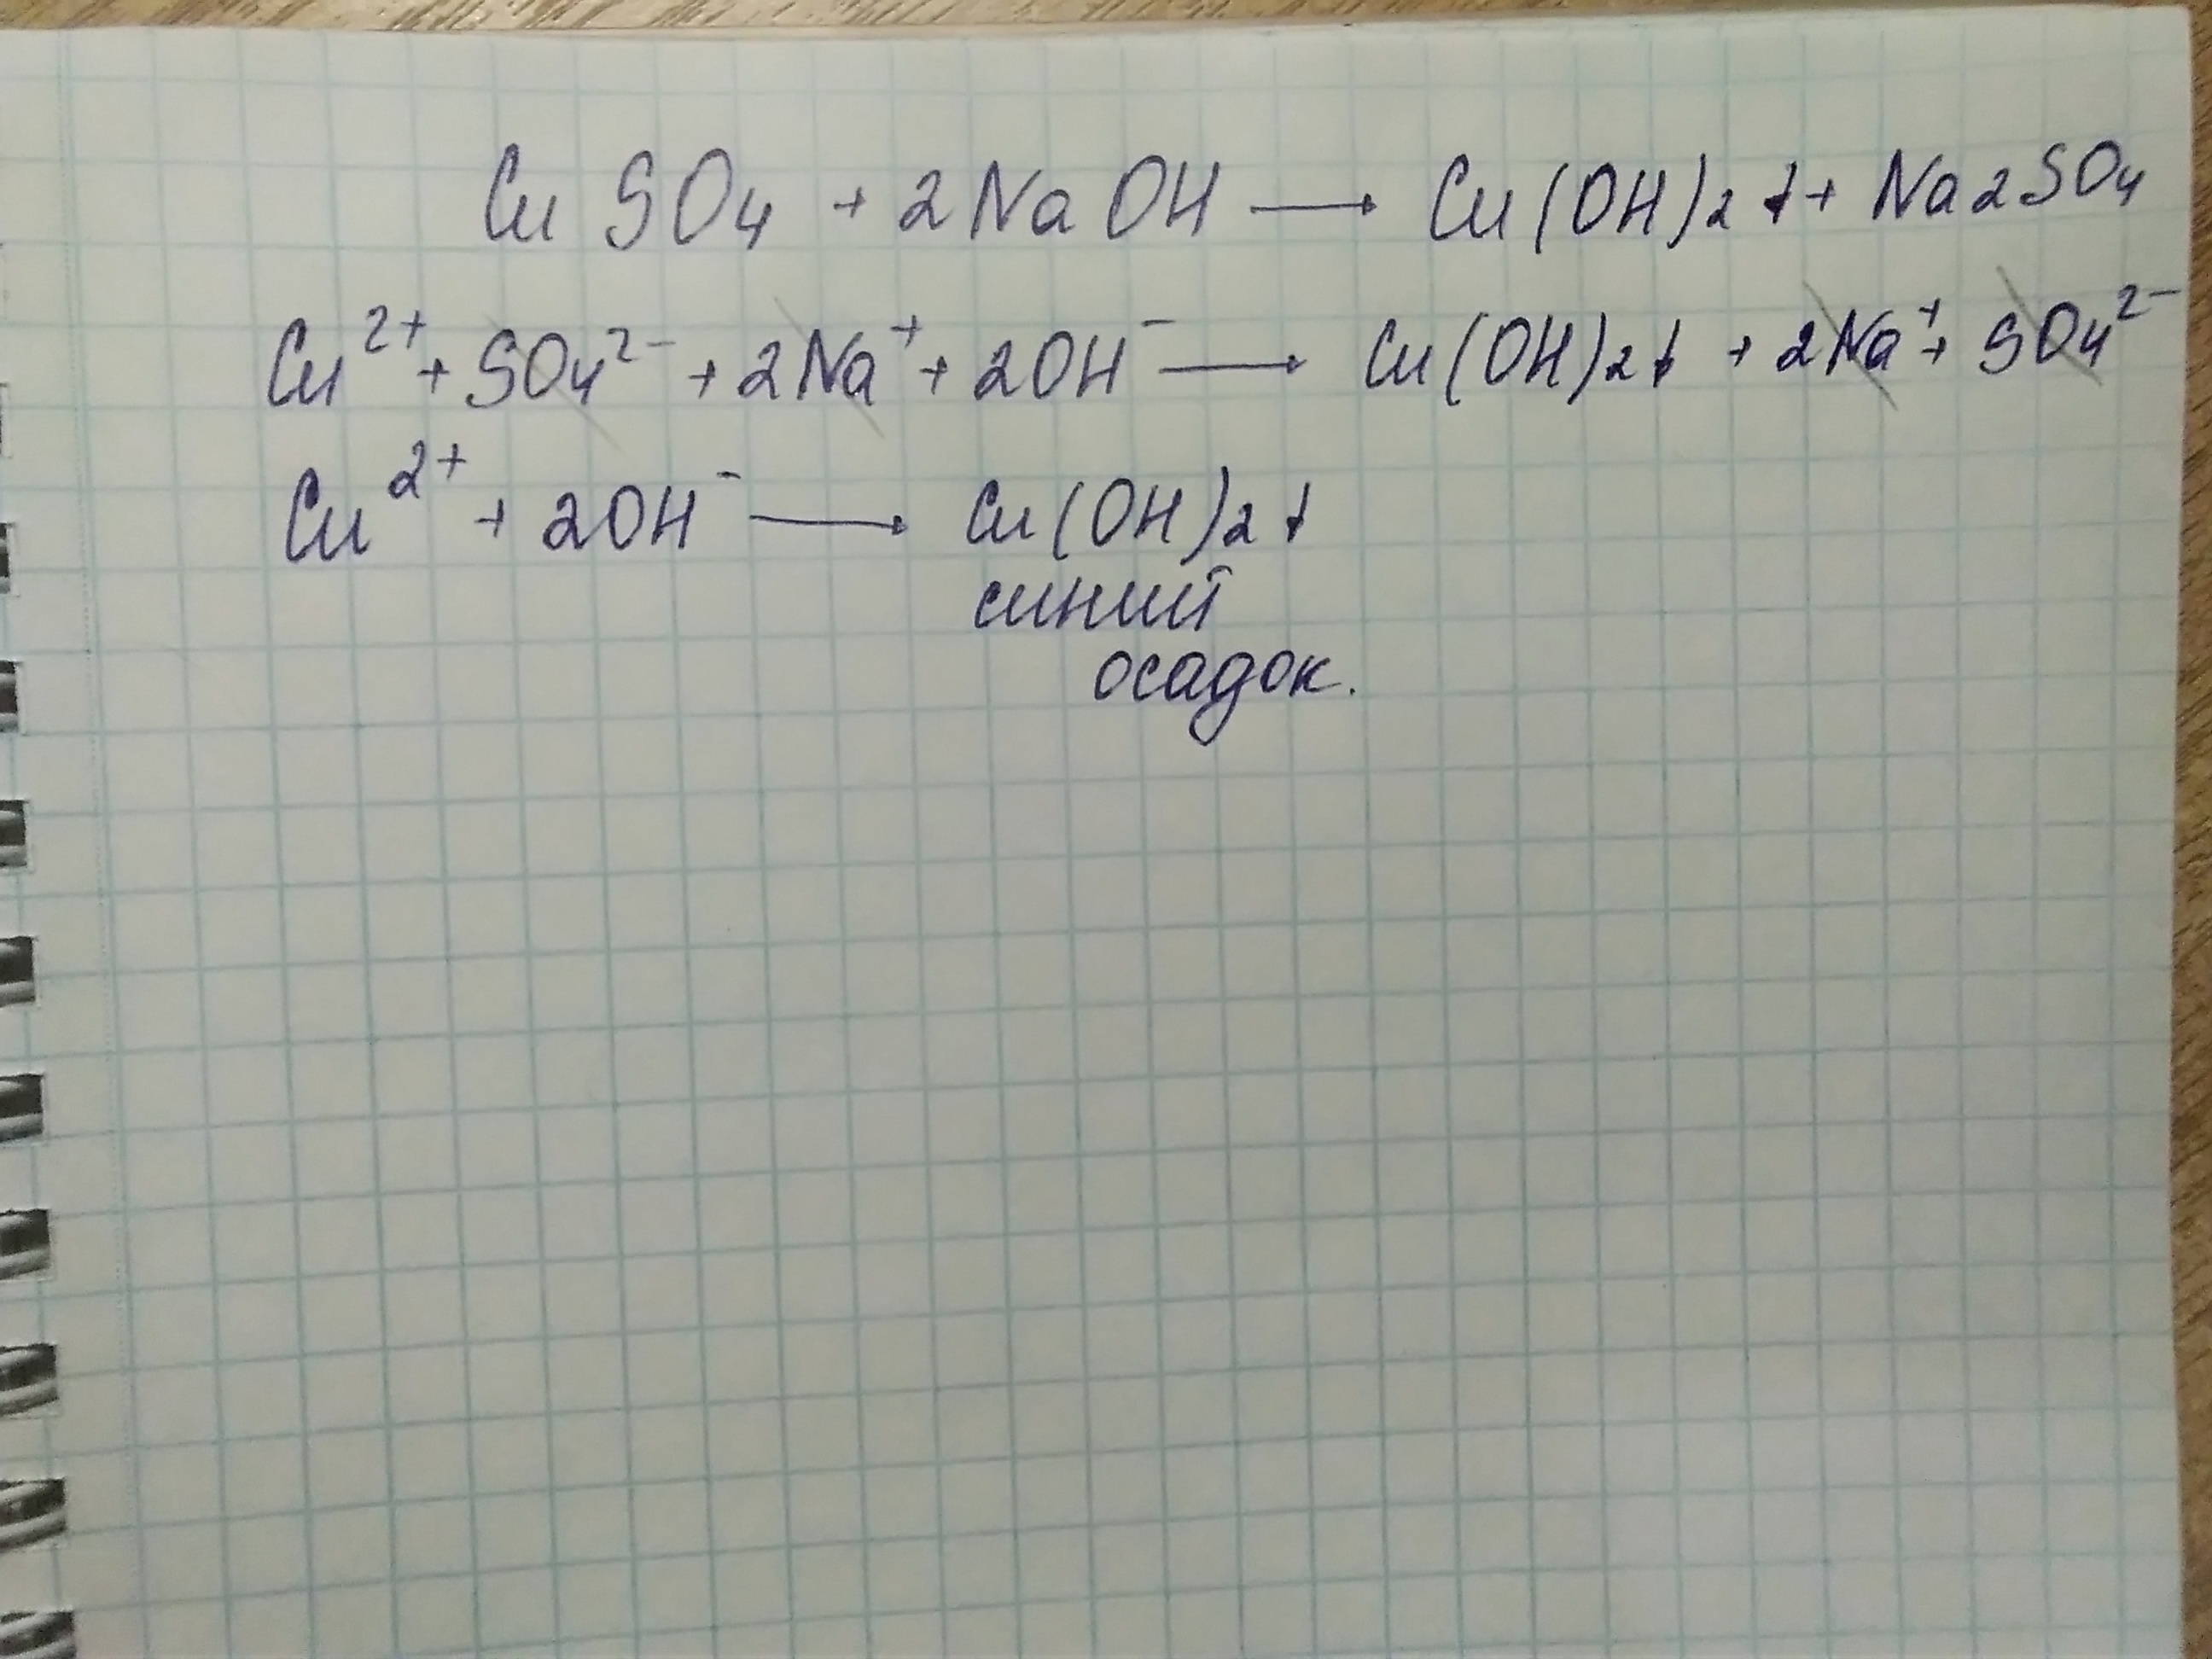 CuSO₄ + 2NaOH → Cu(OH)₂↓ + Na₂SO₄
Cu²⁺ + SO₄²⁻ + 2Na⁺ + 2OH⁻ → Cu(OH)₂↓ + 2Na⁺ + SO₄²⁻
Cu²⁺ + 2OH⁻ → Cu(OH)₂↓
синий
осадок.